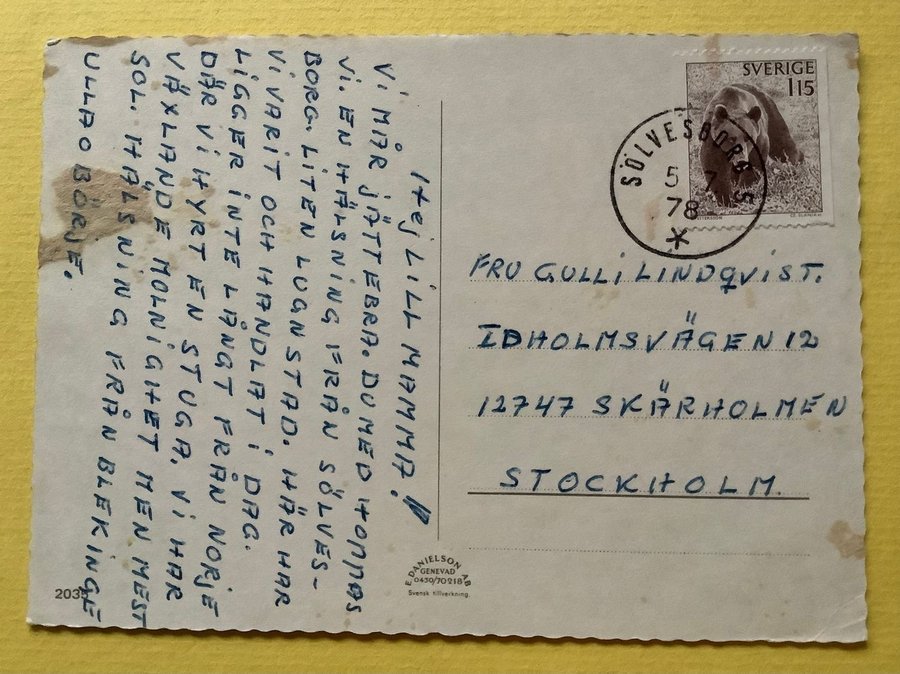 Hej LILL MAMMA!
Vi MÅR JÄTTEBRA. DU MED HOPPAS
Vi. EN HÄLSNING FRÅN SÖLVES-
BORG. LITEN LUGN STAD. HÄR HAR
Vi VARIT OCH HANDLAT i DAG.
LIGGER INTE LÅNGT FRÅN NORJE
DÄR Vi HYRT EN STUGA. Vi HAR
VÄXLANDE MOLNIGHET MEN MEST
SOL. HÄLSNING FRÅN BLEKINGE
ULLA O BÖRJE.
SVERIGE
1 15
SÖLVESBORG
5 7
78
FRU GULLi LINDQVIST.
IDHOLMSVÄGEN 12
12747 SKÄRHOLMEN
STOCKHOLM.
E. DANIELSON AB
GENEVAD
0430/70218
Svensk tillverkning.